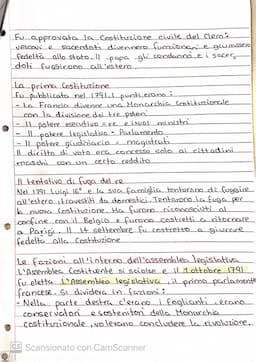 Fu approvata la Costituzione civile del Clero:
vescovi e sacerdoti divennero funzionari e giurarono
fedeltà allo stato. Il papa gli condannò e i sacer
doti fuggirono all'estero.
La prima Costituzione
Fu pubblicata nel 1791. I punti erano:
- La Francia divenne una Monarchia Costituzionale
con la divisione dei tre poteri
- Il potere esecutivo = re e i suoi ministri
- Il potere legislativo = Parlamento
- Il potere giudiziario = magistrati
Il diritto di voto era concesso solo ai cittadini
maschi con un certo reddito
Il tentativo di fuga del re
Nel 1791 Luigi 16° e la sua famiglia tentarono di fuggire
all'estero, travestiti da domestici. Tentarono la fuga per
la nuova Costituzione. Ma furono riconosciuti al
confine con il Belgio e furono costretti a ritornare
a Parigi. Il 14 settembre fu costretto a giurare
fedeltà alla Costituzione
Le fazioni all'interno dell'assemblea legislativa
L'Assemblea Costituente si sciolse e il 1 ottobre 1791
fu eletta L'Assemblea legislativa, il primo parlamento
francese. si divideva in fazioni:
- Nella parte destra c'erano i Foglianti, erano
conservatori e sostenitori della Monarchia
costituzionale, volevano concludere la rivoluzione.
CS Scansionato con CamScanner